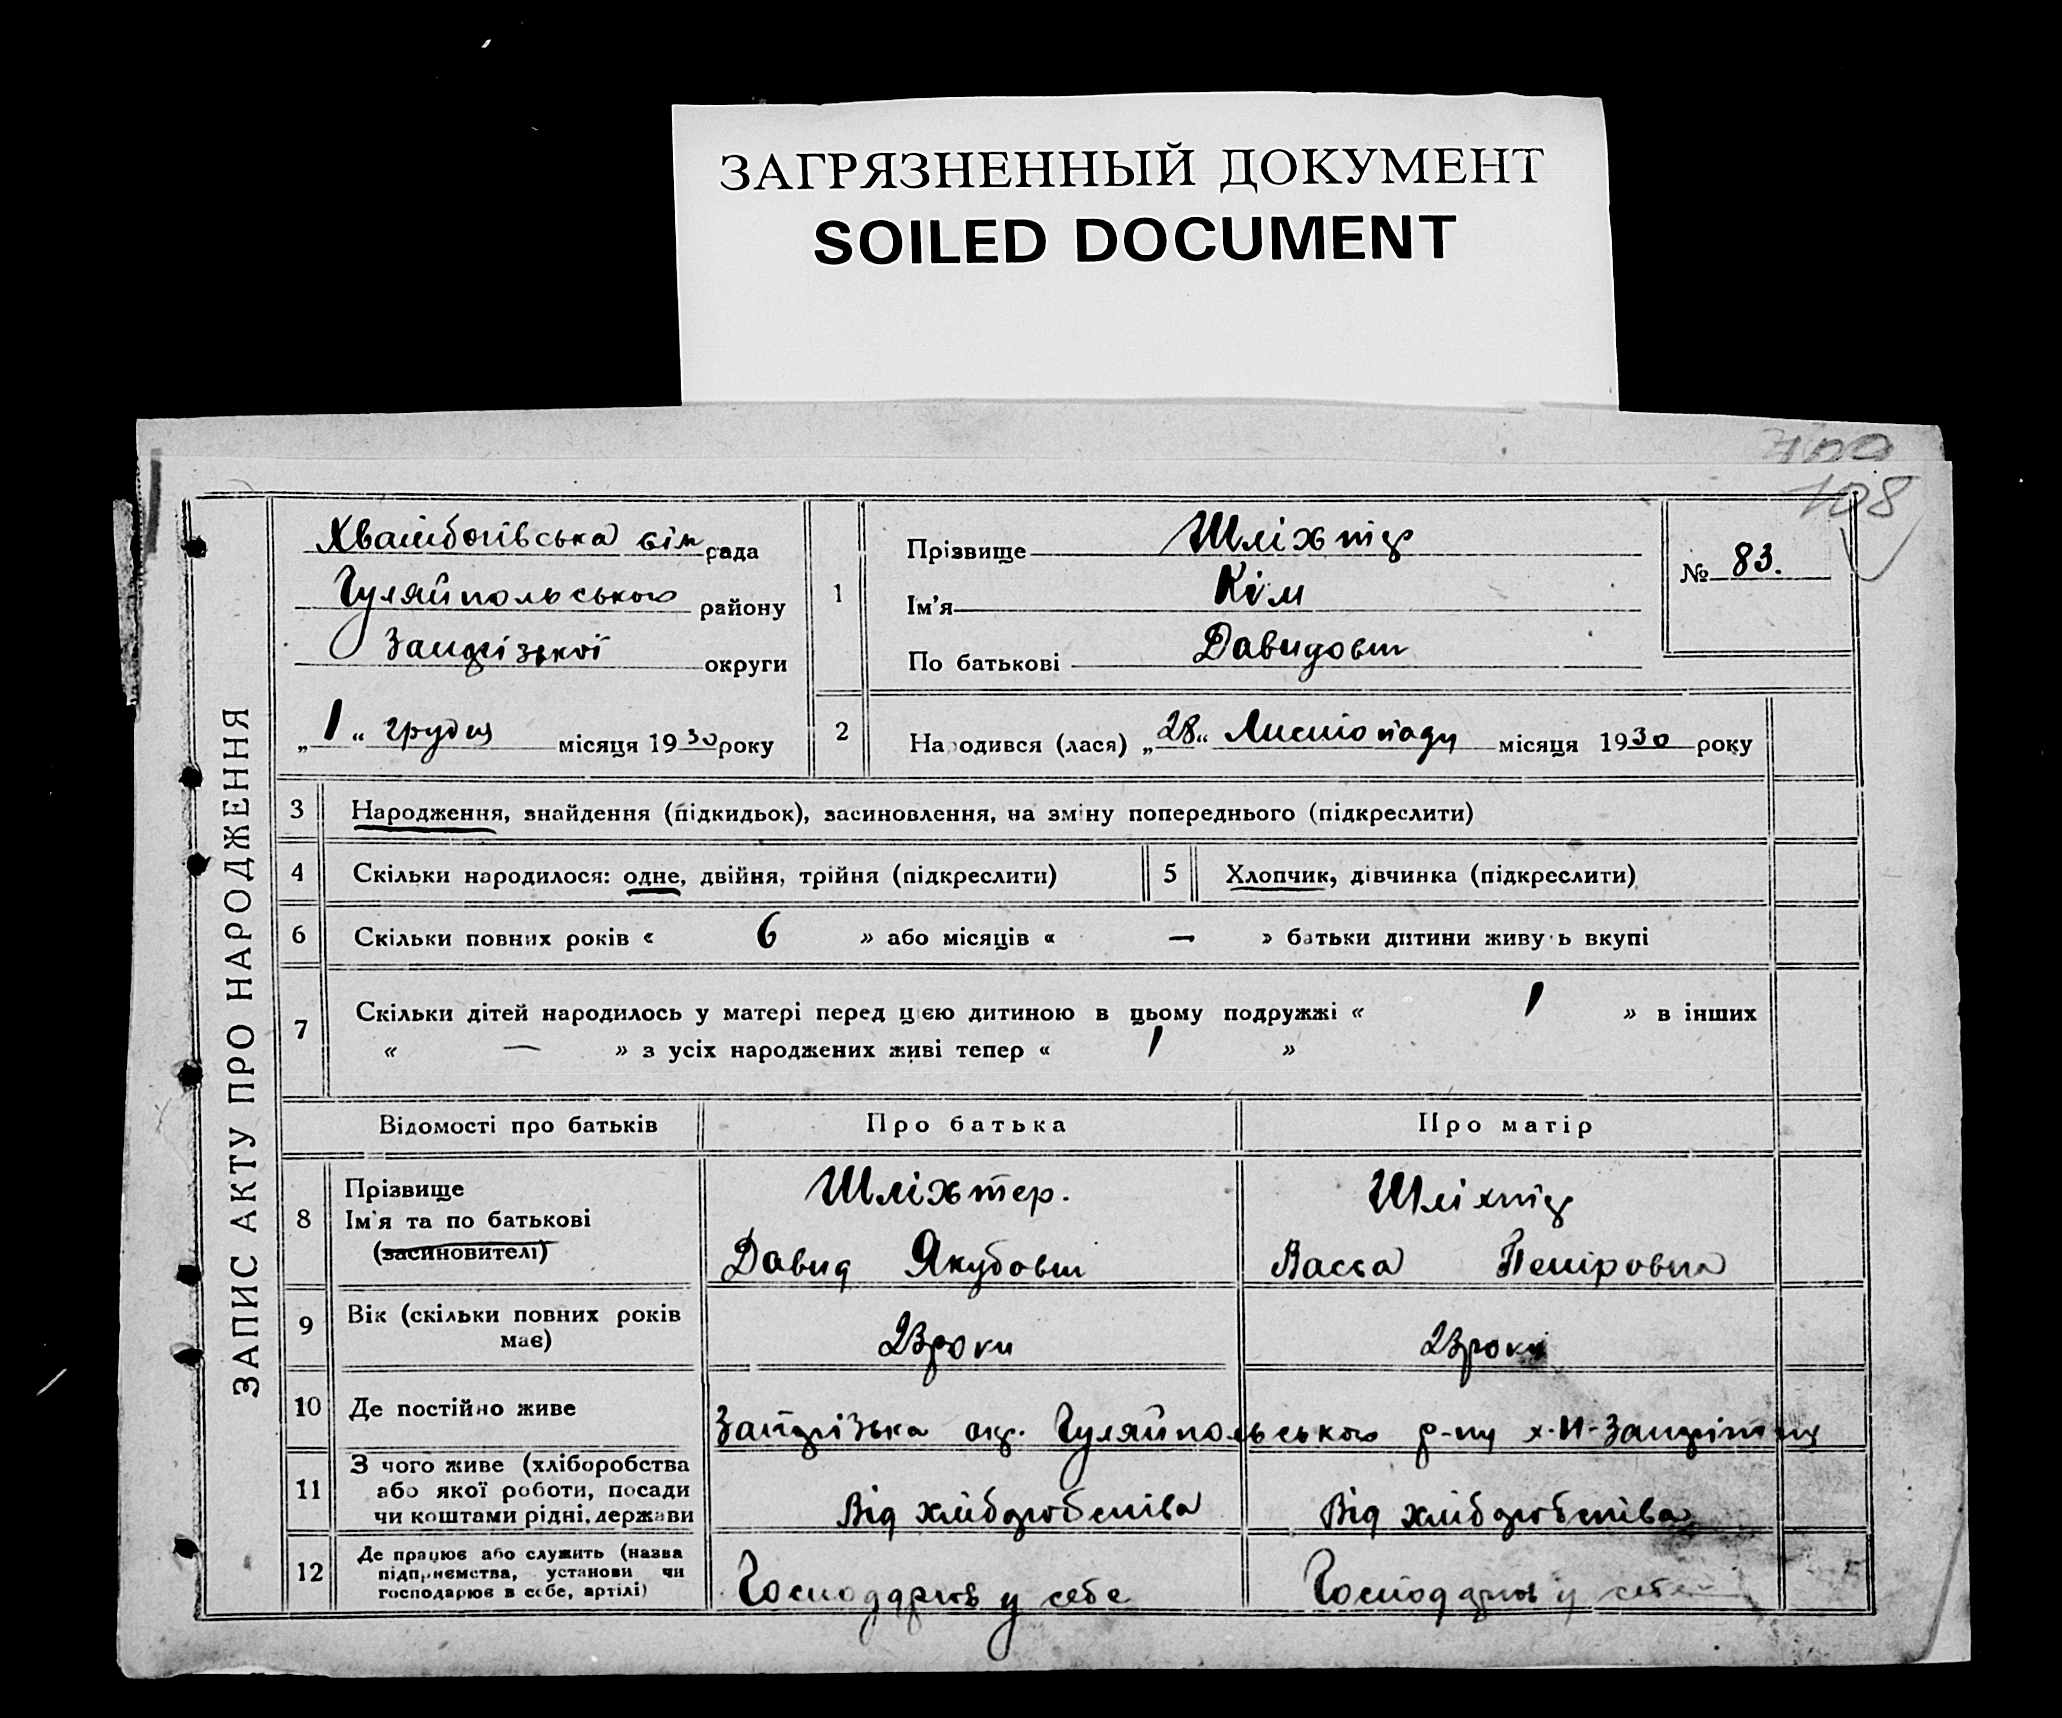 ЗАГРЯЗНЕННЫЙ ДОКУМЕНТ
SOILED DOCUMENT
108
ЗАПИС АКТУ ПРО НАРОДЖЕННЯ
сіл рада
Гуляйпольського району
Запорізької округи
„1“ грудня місяця 1930 року
1
Прізвище Шліхтер
Ім'я Кім
По батькові Давидович
№ 83.
2
Народився (лася) „28“ Листопаду місяця 1930 року
3 Народження, знайдення (підкидьок), засиновлення, на зміну попереднього (підкреслити)
4 Скільки народилося: одне, двійня, трійня (підкреслити)
5 Хлопчик, дівчинка (підкреслити)
6 Скільки повних років « 6 » або місяців « — » батьки дитини живуть вкупі
7 Скільки дітей народилось у матері перед цією дитиною в цьому подружжі « 1 » в інших
« — » з усіх народжених живі тепер « 1 »
Відомості про батьків
Про батька
Про матір
8 Прізвище
Ім'я та по батькові
(засиновителі)
Шліхтер.
Давид Якубович
Шліхтер
Васса Петровна
9 Вік (скільки повних років
має)
23 роки
23 роки
10 Де постійно живе
Запорізька окр. Гуляйпольського р-ну
11 З чого живе (хліборобства
або якої роботи, посади
чи коштами рідні, держави
Від хліборобства
Від хліборобства
12 Де працює або служить (назва
підприємства, установи чи
господарює в себе, артілі)
Господарює у себе
Господарює у себе